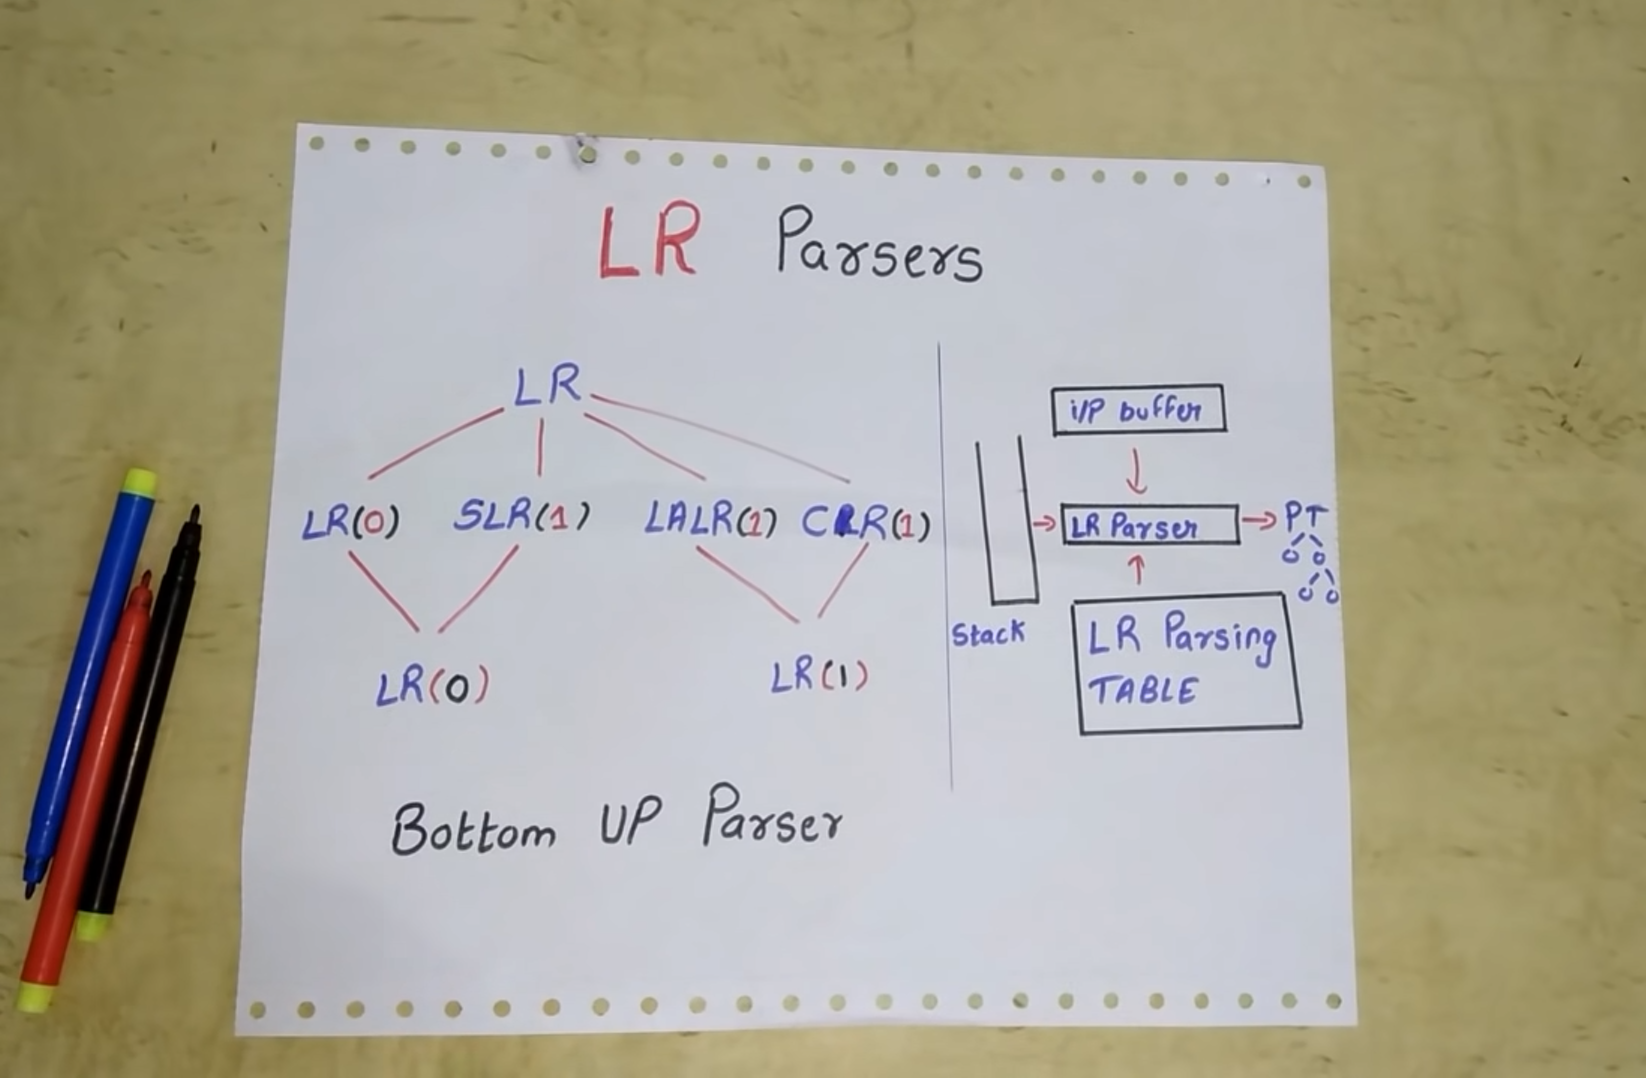 LR Parsers
LR
LR(0) SLR(1) LALR(1) CLR(1)
LR(0) LR(1)
Bottom UP Parser
i/P buffer
LR Parser
PT
Stack
LR Parsing
TABLE